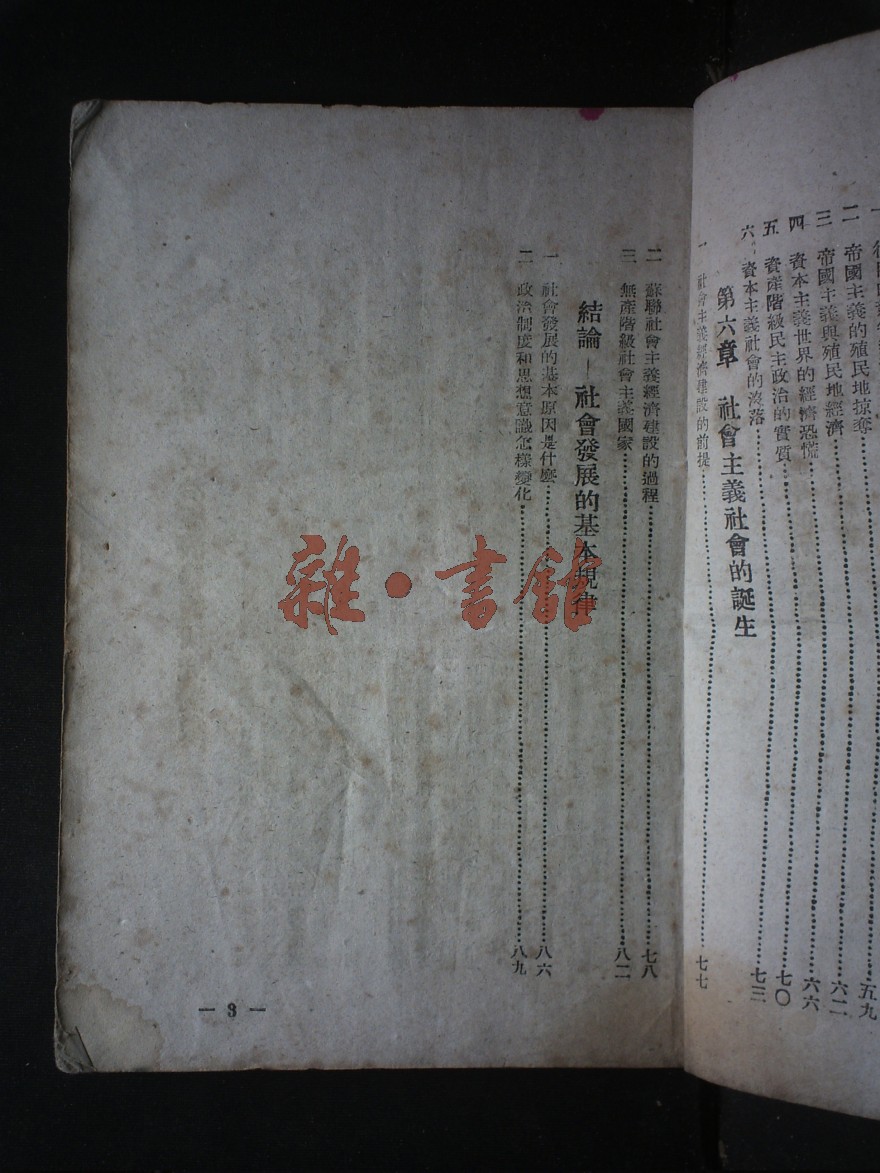 二　帝國主義的殖民地掠奪……六二
三　帝國主義與殖民地經濟……六二
四　資本主義世界的經濟恐慌……六六
五　資產階級民主政治的實質……七〇
六　資本主義社會的沒落……七三
第六章　社會主義社會的誕生
一　社會主義經濟建設的前提……七七
二　蘇聯社會主義經濟建設的過程……七八
三　無產階級社會主義國家……八二
結論－社會發展的基本規律
一　社會發展的基本原因是什麼……八六
二　政治制度和思想意識怎樣變化……八九
— 3 —
雜·書館